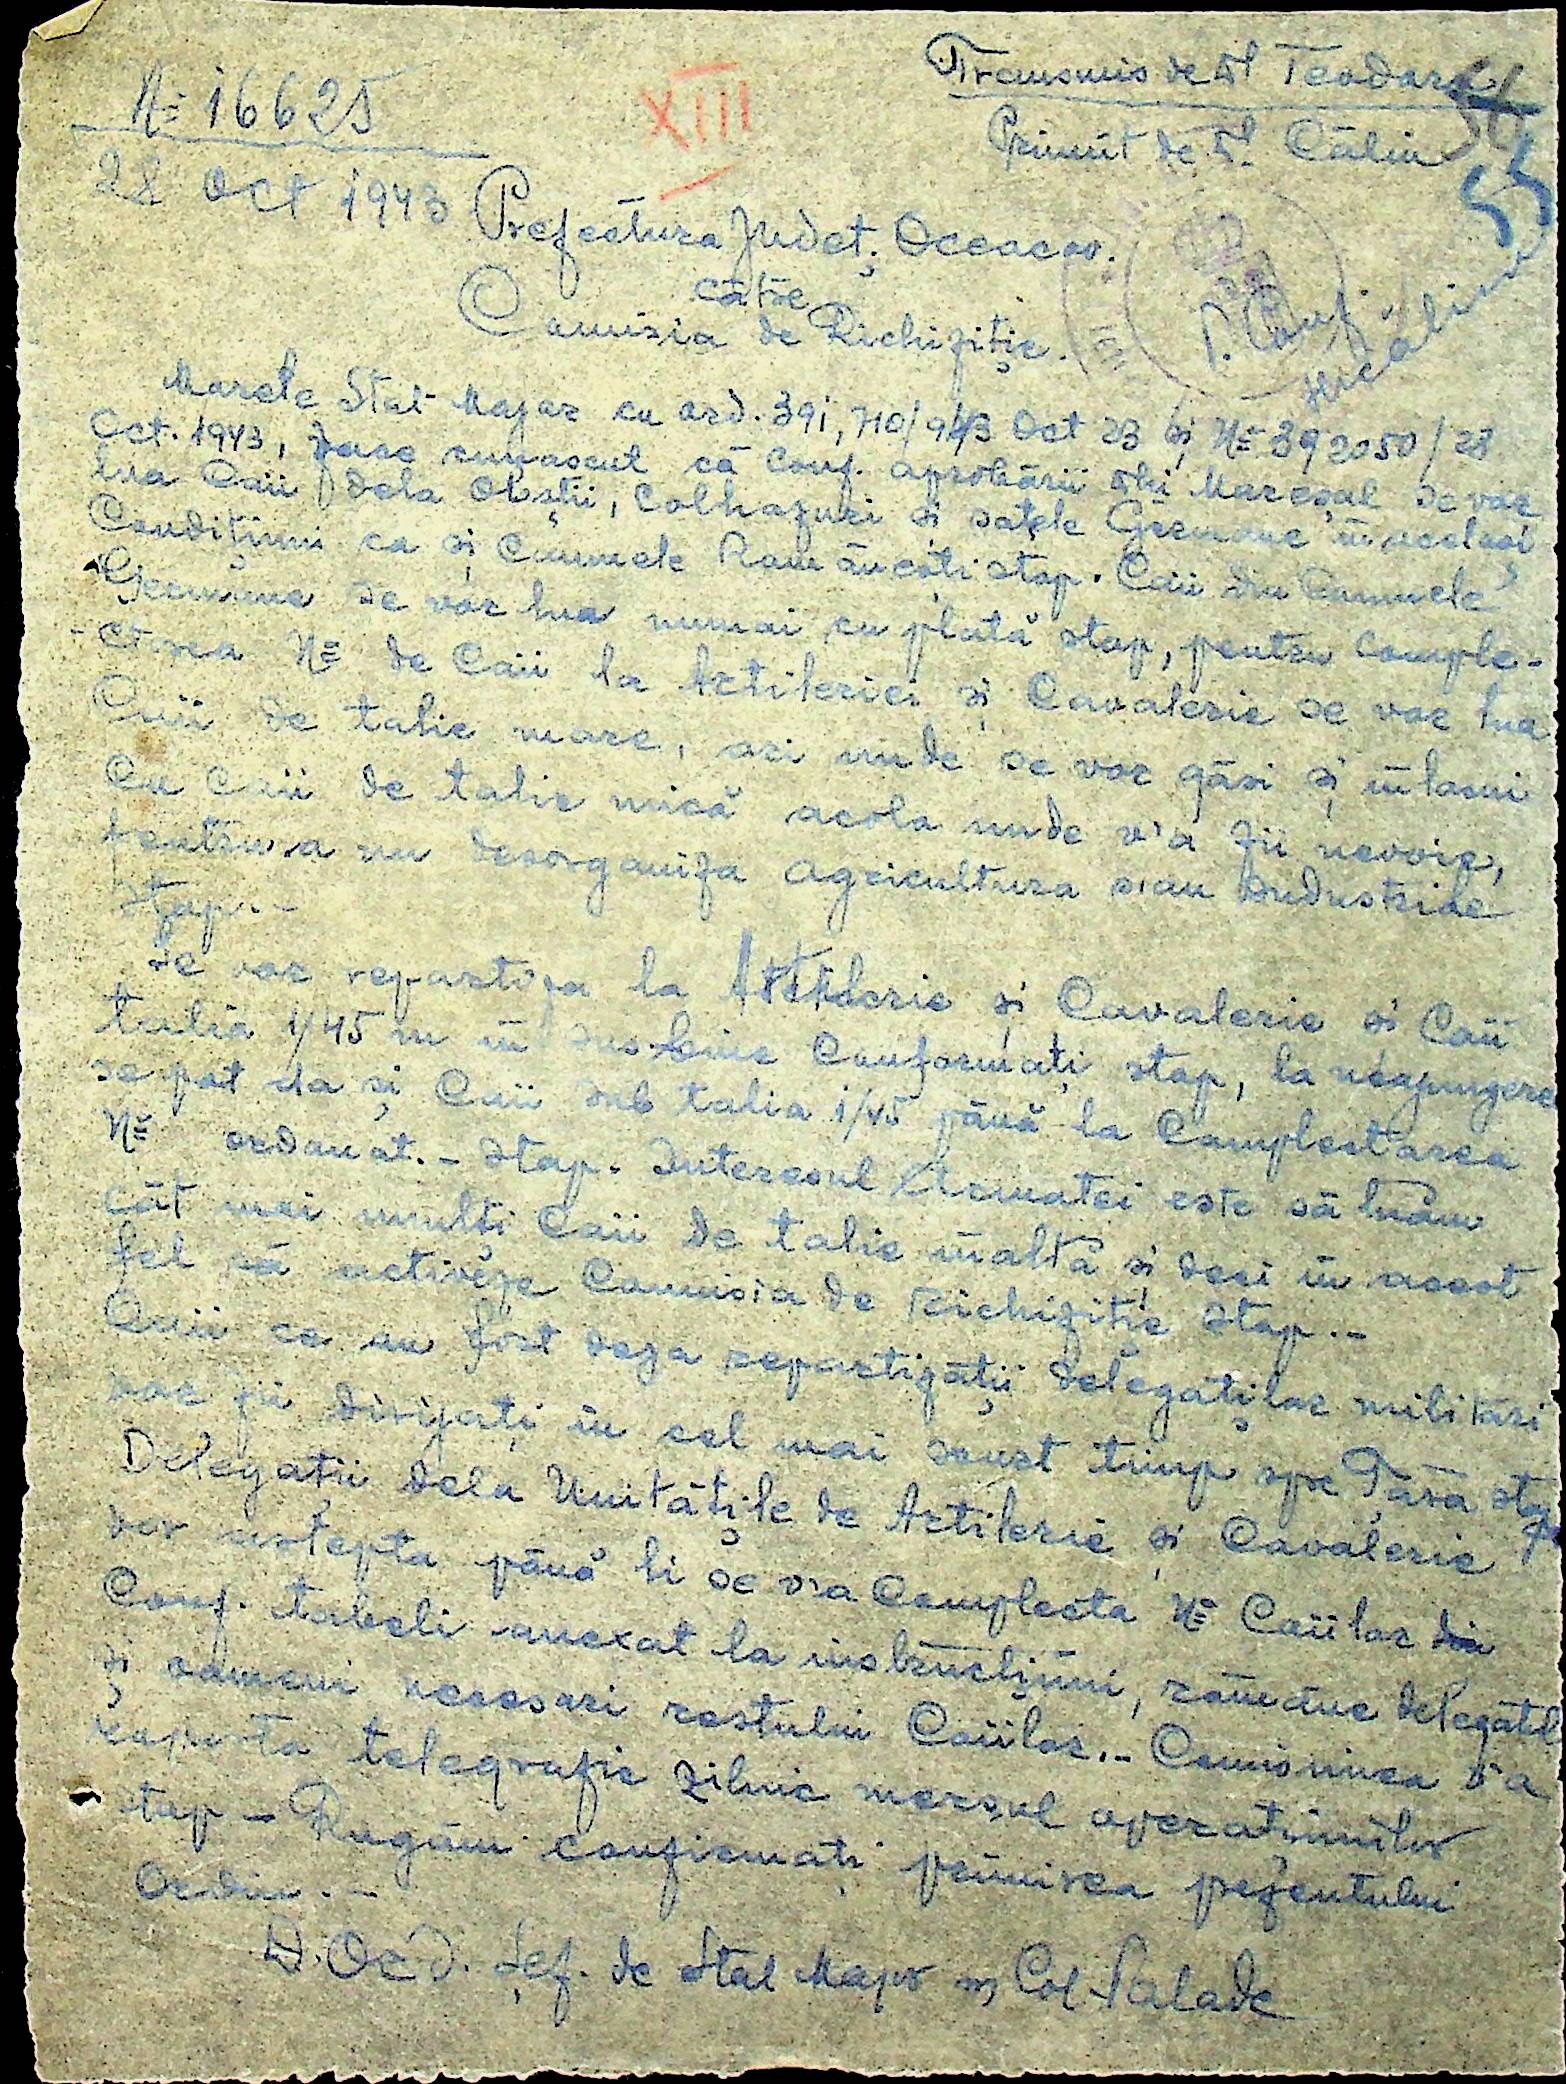 Transmis de Dl Teodoru
Nº 16625
XIII
Primit de Dl. Călin
55
28 Oct 1943
Prefectura Judeţ. Oceacov.
către
Comisia de Richiziţie.
Marele Stat Major cu ord. 391,710/943 Oct 23 şi Nº 392050/28
Oct. 1943, face cunoscut că conf. aprobării Dlui Mareşal se vor
lua Caii dela Obştii, Colhazuri şi satele Germane în acelaşi
Condiţiuni ca şi Comunele Româneşti stop. Caii din Comunele
Germane se vor lua numai cu plată stop, pentru comple-
ctarea Nº de Caii la Artileriei şi Cavalerie se vor lua
Caii de talie mare, ori unde se vor găsi şi înlocui
Cu Caii de talie mică acolo unde v'a fii nevoie,
pentru a nu desorganiza agricultura s'au Industriae
Stop.-
Se vor repartiza la Artilerie şi Cavalerie şi Caii
talia 1/45 m în Conformaţi stop, la neajungere
se pot da şi Caii sub talia 1/45 până la Complectarea
Nº ordonat.- Stop. Interesul Armatei este să luăm
cât mai mulţi Caii de talie înaltă şi deci în acest
fel să activeze Comisia de Richiziţie Stop.-
Caii ce au fost deja repartizaţii delegaţilor militari
vor fii dirijaţi în cel mai scurt timp spre Ţară stop
Delegaţii dela Unităţile de Artilerie şi Cavalerie
vor aştepta până li se v'a Complecta Nº Caiilor din
Conf. tabeli anexat la instrucţiuni, rămâne delegatul
şi oameni necesari restului Caiilor.- Comisiunea v'a
raporta telegrafic zilnic mersul operaţiunilor
stop - Rugăm confirmaţi primirea prezentului
Ordin.-
D.Ord. Şef. de Stat Major ss Col Palade